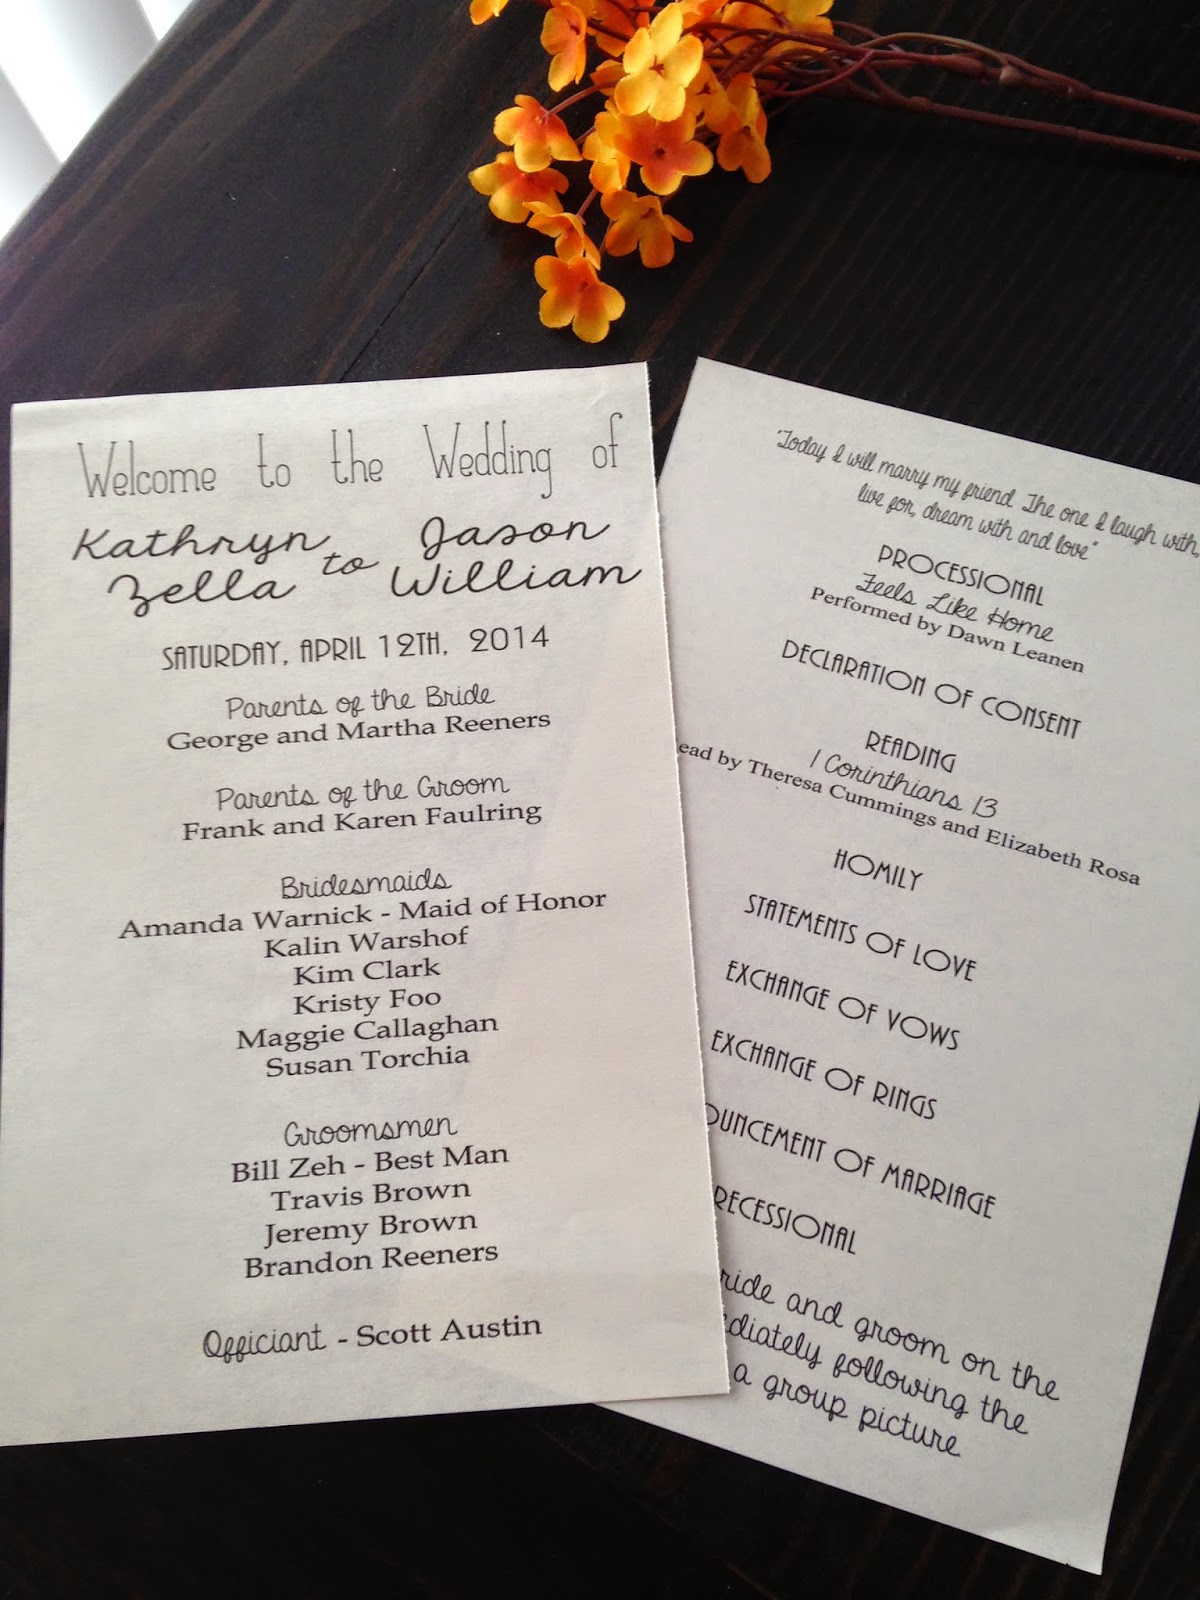 Welcome to the Wedding of
Kathryn Zella to Jason William
SATURDAY, APRIL 12TH, 2014
Parents of the Bride
George and Martha Reeners
Parents of the Groom
Frank and Karen Faulring
Bridesmaids
Amanda Warnick - Maid of Honor
Kalin Warshof
Kim Clark
Kristy Foo
Maggie Callaghan
Susan Torchia
Groomsmen
Bill Zeh - Best Man
Travis Brown
Jeremy Brown
Brandon Reeners
Officiant - Scott Austin
"Today I will marry my friend. The one I laugh with,
live for, dream with and love"
PROCESSIONAL
Feels Like Home
Performed by Dawn Leanen
DECLARATION OF CONSENT
READING
1 Corinthians 13
ead by Theresa Cummings and Elizabeth Rosa
HOMILY
STATEMENTS OF LOVE
EXCHANGE OF VOWS
EXCHANGE OF RINGS
OUNCEMENT OF MARRIAGE
RECESSIONAL
ride and groom on the
diately following the
a group picture